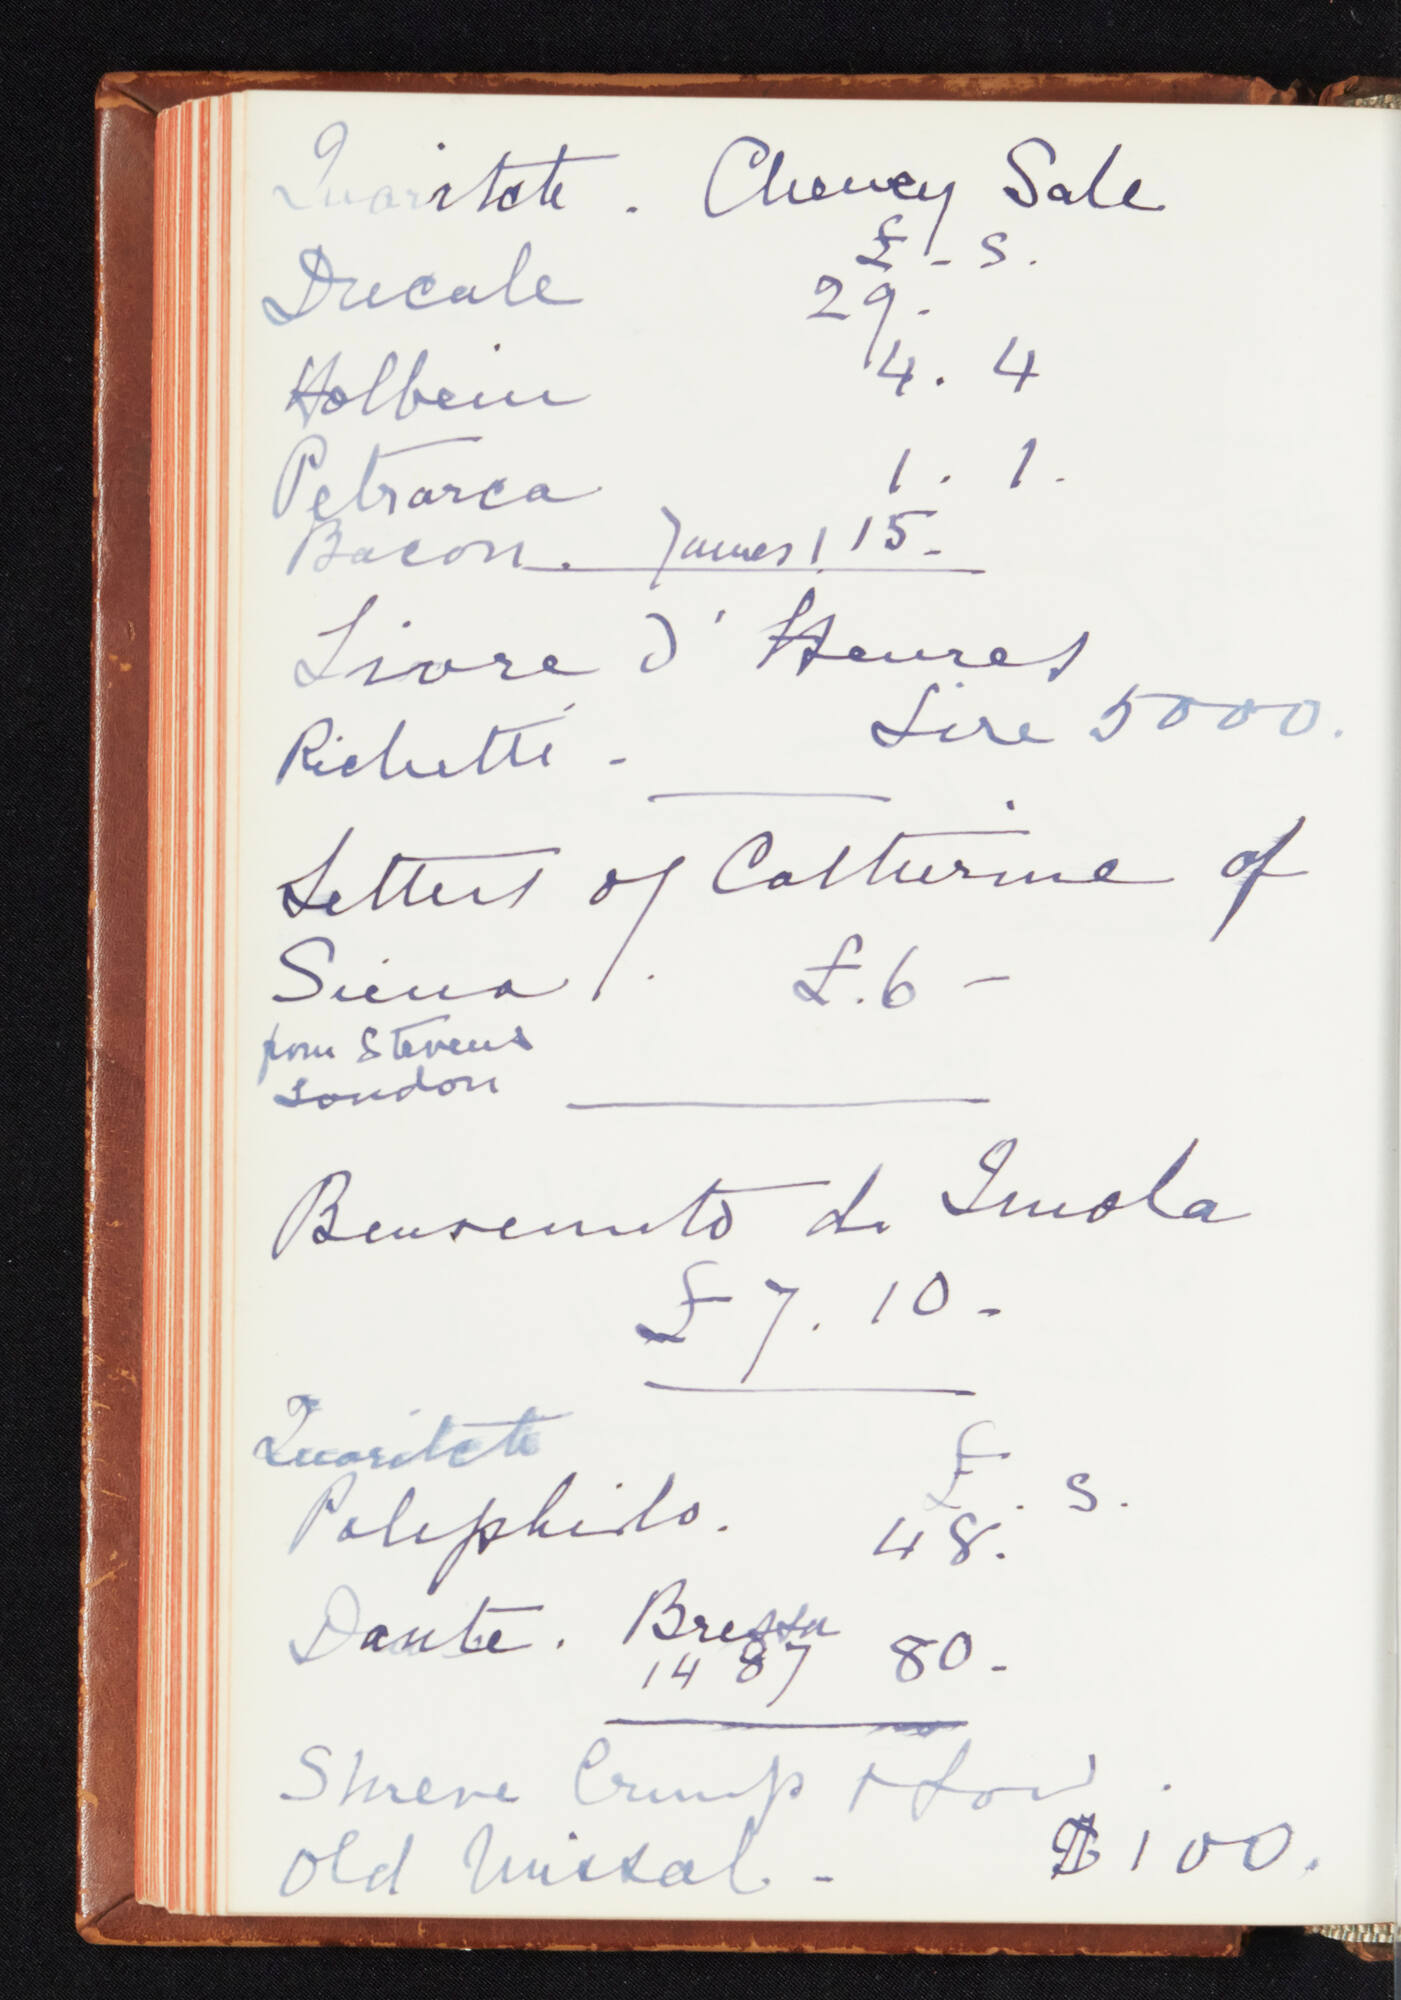 Quaritch. Cheney Sale
£ - s.
Ducale 29.
Holbein 4. 4
Petrarca 1. 1.
Bacon. James I 15-
Livre d'Heures
Richetti - Lire 5000.
Letters of Catherine of
Siena. £.6 -
from Stevens
London
Benvenuto da Imola
£7. 10-
Quaritch
£. s.
Poliphilo. 48.
Dante. Bressa
1487 80-
Shreve Crump + Low.
Old Missal - $100.